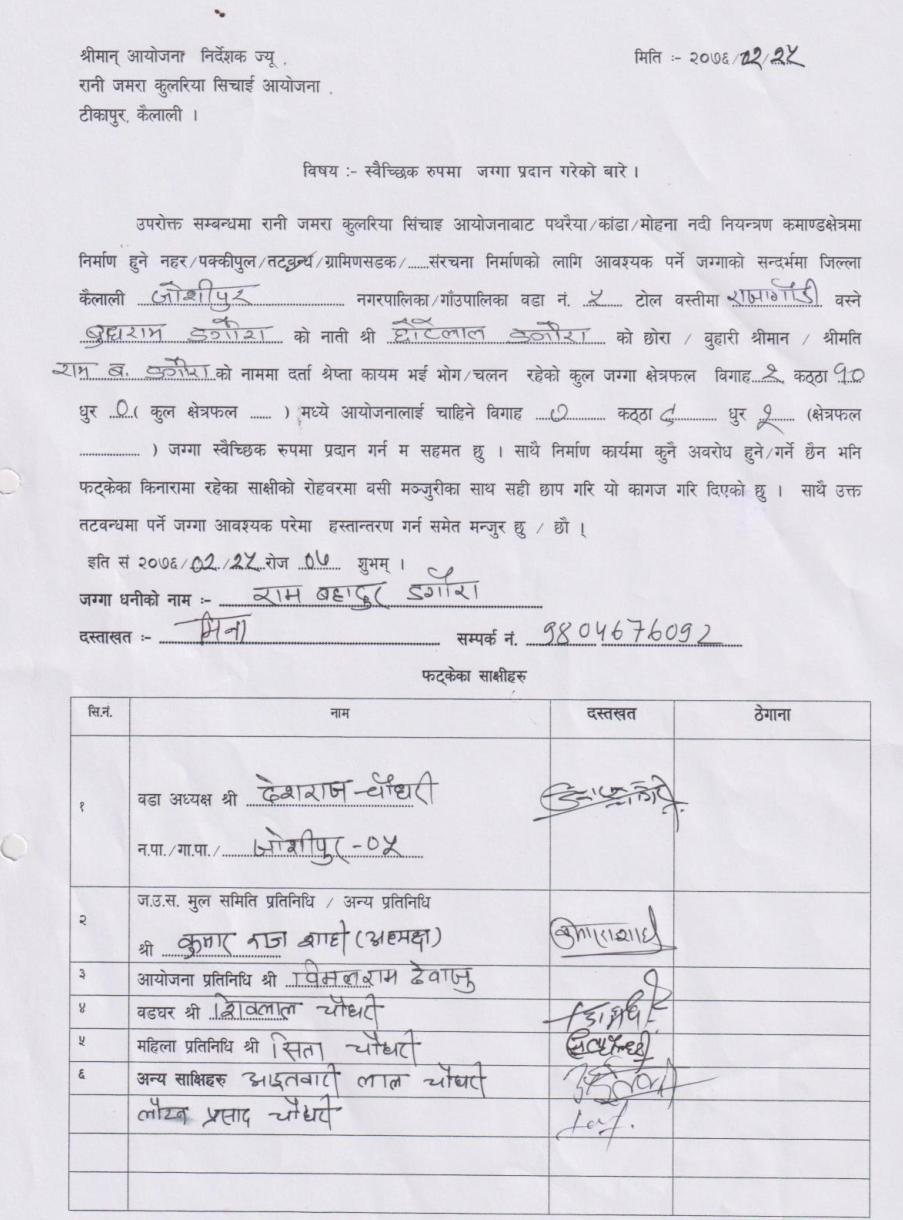 श्रीमान् आयोजना निर्देशक ज्यू ,
मिति :- २०७६/02/25
रानी जमरा कुलरिया सिचाई आयोजना .
टीकापुर, कैलाली ।
विषय :- स्वैच्छिक रुपमा जग्गा प्रदान गरेको बारे ।
उपरोक्त सम्बन्धमा रानी जमरा कुलरिया सिंचाइ आयोजनावाट पथरैया/कांडा/मोहना नदी नियन्त्रण कमाण्डक्षेत्रमा
निर्माण हुने नहर/पक्कीपुल/तटवन्ध/ग्रामिणसडक/......संरचना निर्माणको लागि आवश्यक पर्ने जग्गाको सन्दर्भमा जिल्ला
कैलाली जोशीपुर नगरपालिका/गाँउपालिका वडा नं. ५ टोल वस्तीमा वस्ने
बुधराम डगौरा को नाती श्री छोटेलाल डगौरा को छोरा / बुहारी श्रीमान / श्रीमति
राम ब. डगौरा को नाममा दर्ता श्रेष्ता कायम भई भोग/चलन रहेको कुल जग्गा क्षेत्रफल विगाह २ कठ्ठा १०
धुर 0 ( कुल क्षेत्रफल ...... ) मध्ये आयोजनालाई चाहिने विगाह ० कठ्ठा ८ धुर २ (क्षेत्रफल
................. ) जग्गा स्वैच्छिक रुपमा प्रदान गर्न म सहमत छु । साथै निर्माण कार्यमा कुनै अवरोध हुने/गर्ने छैन भनि
फट्केका किनारामा रहेका साक्षीको रोहवरमा वसी मञ्जुरीका साथ सही छाप गरि यो कागज गरि दिएको छु । साथै उक्त
तटवन्धमा पर्ने जग्गा आवश्यक परेमा हस्तान्तरण गर्न समेत मन्जुर छु / छौ ।
इति सं २०७६/02/25 रोज 07 शुभम् ।
जग्गा धनीको नाम :- राम बहादुर डगौरा
दस्ताखत :- मिना सम्पर्क नं. 9804676092
फट्केका साक्षीहरु
सि.नं. नाम दस्तखत ठेगाना
१ वडा अध्यक्ष श्री देशराज चौधरी
न.पा./गा.पा./ जोशीपुर -०५
२ ज.उ.स. मुल समिति प्रतिनिधि / अन्य प्रतिनिधि
श्री कुमार राज शाही (अध्यक्ष)
३ आयोजना प्रतिनिधि श्री विमलराम देवाजु
४ वडघर श्री शिवलाल चौधरी
५ महिला प्रतिनिधि श्री सिता चौधरी
६ अन्य साक्षिहरु आइतवारी लाल चौधरी
प्रसाद चौधरी